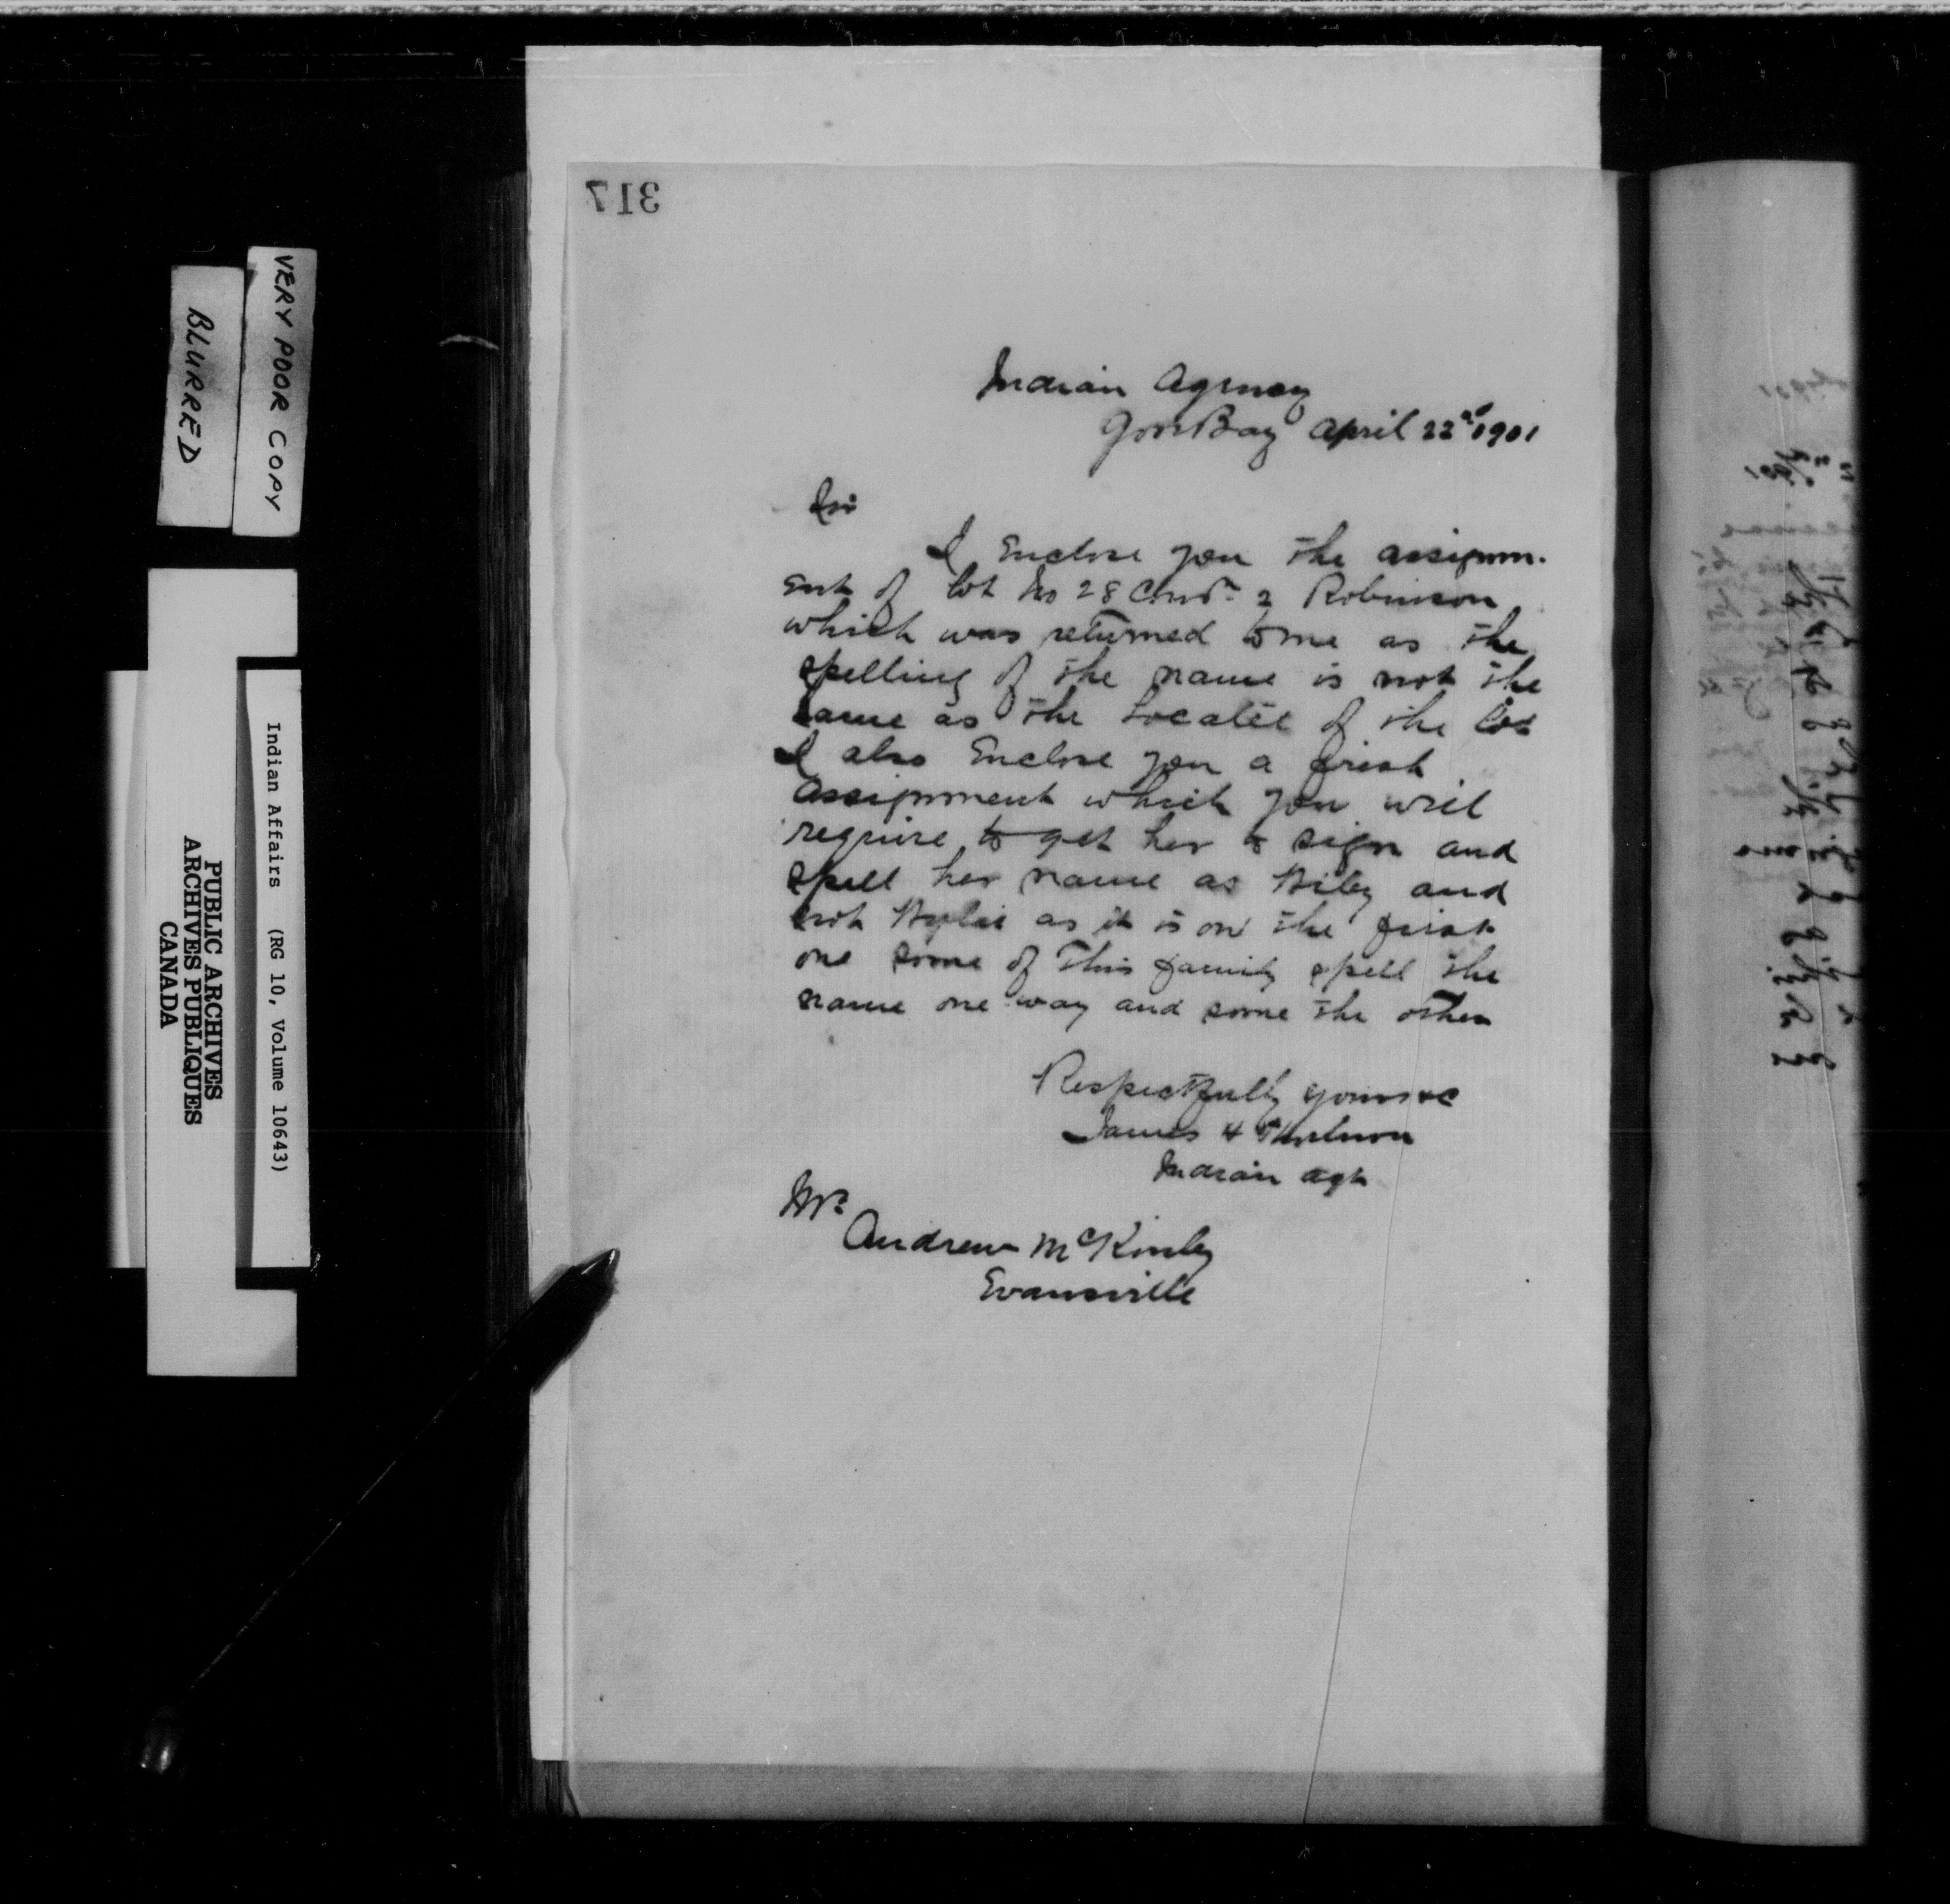 317
Indian Agency
Gore Bay April 22nd 1901
Sir
I Enclose you the assignm-
ent of lot No 28 Con 2 Robinson
which was returned to me as the
spelling of the name is not the
same as the Locatee of the lot
I also Enclose you a fresh
assignment which you will
require to get her to sign and
spell her name as Wiley and
not Wylie as it is on the first
one some of this family spell the
name one way and some the other
Respectfully yours &c
James H
Indian Agt
Mr
Andrew McKinley
Evansville
VERY POOR COPY
BLURRED
Indian Affairs (RG 10, Volume 10643)
PUBLIC ARCHIVES
ARCHIVES PUBLIQUES
CANADA